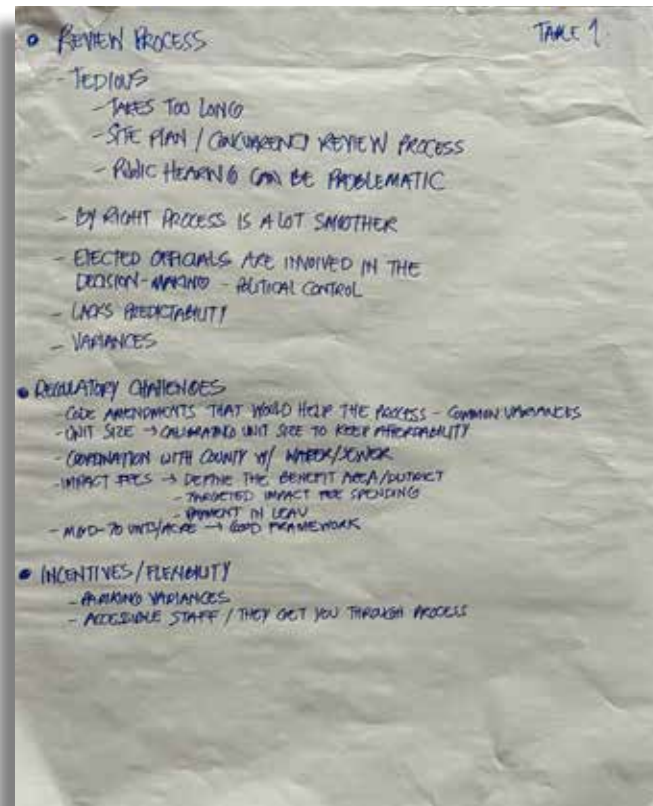 TABLE 1
• REVIEW PROCESS
- TEDIOUS
- TAKES TOO LONG
- SITE PLAN / CONCURRENCY REVIEW PROCESS
- PUBLIC HEARING CAN BE PROBLEMATIC
- BY RIGHT PROCESS IS A LOT SMOOTHER
- ELECTED OFFICIALS ARE INVOLVED IN THE
DECISION-MAKING - POLITICAL CONTROL
- LACKS PREDICTABILITY
- VARIANCES
• REGULATORY CHALLENGES
- CODE AMENDMENTS THAT WOULD HELP THE PROCESS - COMMON VARIANCES
- UNIT SIZE → CALIBRATING UNIT SIZE TO KEEP AFFORDABILITY
- COORDINATION WITH COUNTY W/ WATER/SEWER
- IMPACT FEES → DEFINE THE BENEFIT AREA/DISTRICT
- TARGETED IMPACT FEE SPENDING
- PAYMENT IN LEAU
- 70 UNITS/ACRE → GOOD FRAMEWORK
• INCENTIVES/FLEXIBILITY
- PARKING VARIANCES
- ACCESSIBLE STAFF / THEY GET YOU THROUGH PROCESS